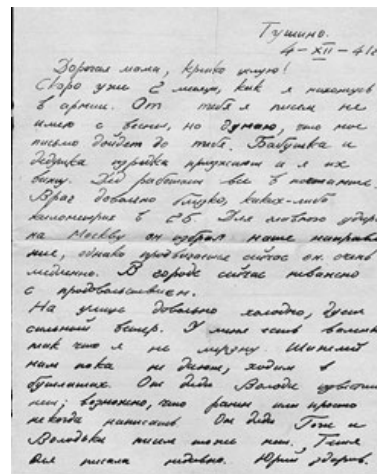 Тушино.
4-XII-41г
Дорогая мама, крепко целую!
Скоро уже 2 месяца, как я нахожусь
в армии. От тебя я писем не
имею с весны, но думаю, что мое
письмо дойдет до тебя. Бабушка и
дедушка изредка приезжают и я их
вижу. Дед работает все в
Враг довольно близко, каких-либо
километрах в 25. Для главного удара
на Москву он избрал наше направле
ние, однако продвигается сейчас он очень
медленно. В городе сейчас неважно
с продовольствием.
На улице довольно холодно, дует
сильный ветер. У меня есть валенки
так что я не мерзну. Шинелей
нам пока не дают, ходим в
бушлатах. От дяди Володи известий
нет; возможно, что ранен или просто
некогда написать. От дяди Гоги и
Володьки писем тоже нет. Тетя
писала недавно. Юрий здоров.